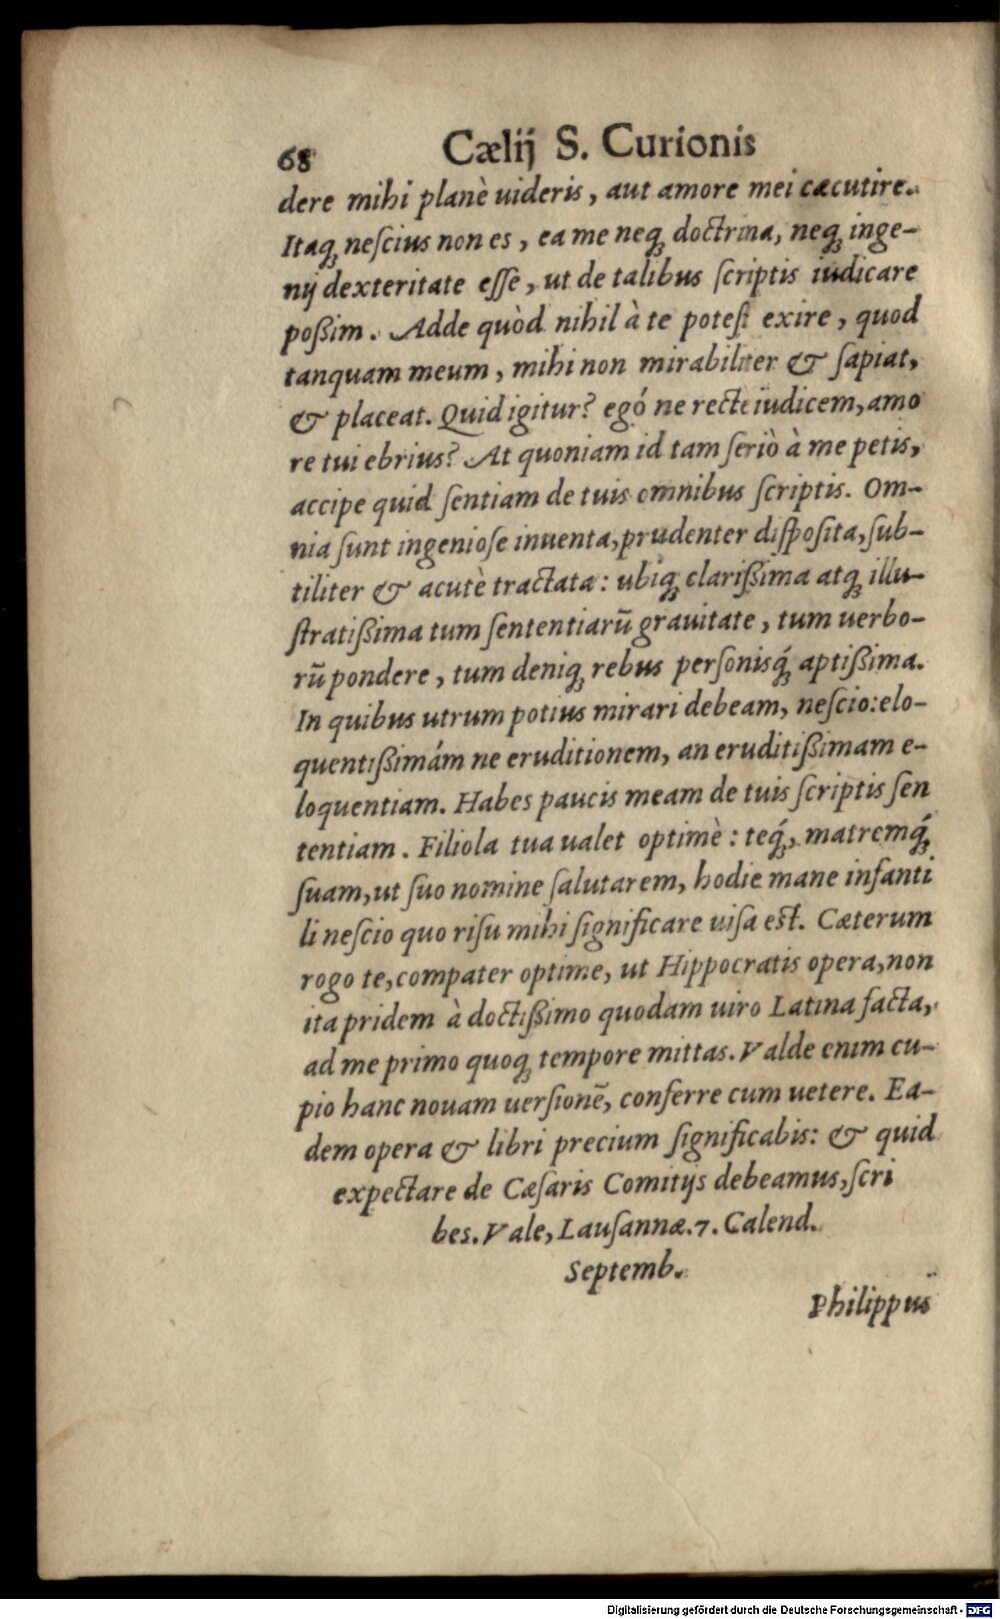 68 Cælij S. Curionis
dere mihi planè uideris, aut amore mei cæcutire.
Itaq; neſcius non es, ea me neq; doctrina, neq; inge-
nij dexteritate eſſe, ut de talibus ſcriptis iudicare
poßim. Adde quòd nihil à te poteſt exire, quod
tanquam meum, mihi non mirabiliter & ſapiat,
& placeat. Quid igitur? egó ne recte iudicem, amo
re tui ebrius? At quoniam id tam ſeriò à me petis,
accipe quid ſentiam de tuis omnibus ſcriptis. Om-
nia ſunt ingenioſe inuenta, prudenter diſpoſita, ſub-
tiliter & acutè tractata: ubiq; clarißima atq; illu-
ſtratißima tum ſententiarũ grauitate, tum uerbo-
rũ pondere, tum deniq; rebus perſonisq́; aptißima.
In quibus utrum potius mirari debeam, neſcio: elo-
quentißimám ne eruditionem, an eruditißimam e-
loquentiam. Habes paucis meam de tuis ſcriptis ſen
tentiam. Filiola tua ualet optimè: teq́;, matremq́;
ſuam, ut ſuo nomine ſalutarem, hodie mane infanti
li neſcio quo riſu mihi ſignificare uiſa est. Cæterum
rogo te, compater optime, ut Hippocratis opera, non
ita pridem à doctißimo quodam uiro Latina facta,
ad me primo quoq; tempore mittas. Valde enim cu-
pio hanc nouam uerſionẽ, conferre cum uetere. Ea-
dem opera & libri precium ſignificabis: & quid
expectare de Cæſaris Comitijs debeamus, ſcri
bes. Vale, Lauſannæ. 7. Calend.
Septemb.
Philippus
Digitalisierung gefördert durch die Deutsche Forschungsgemeinschaft - DFG